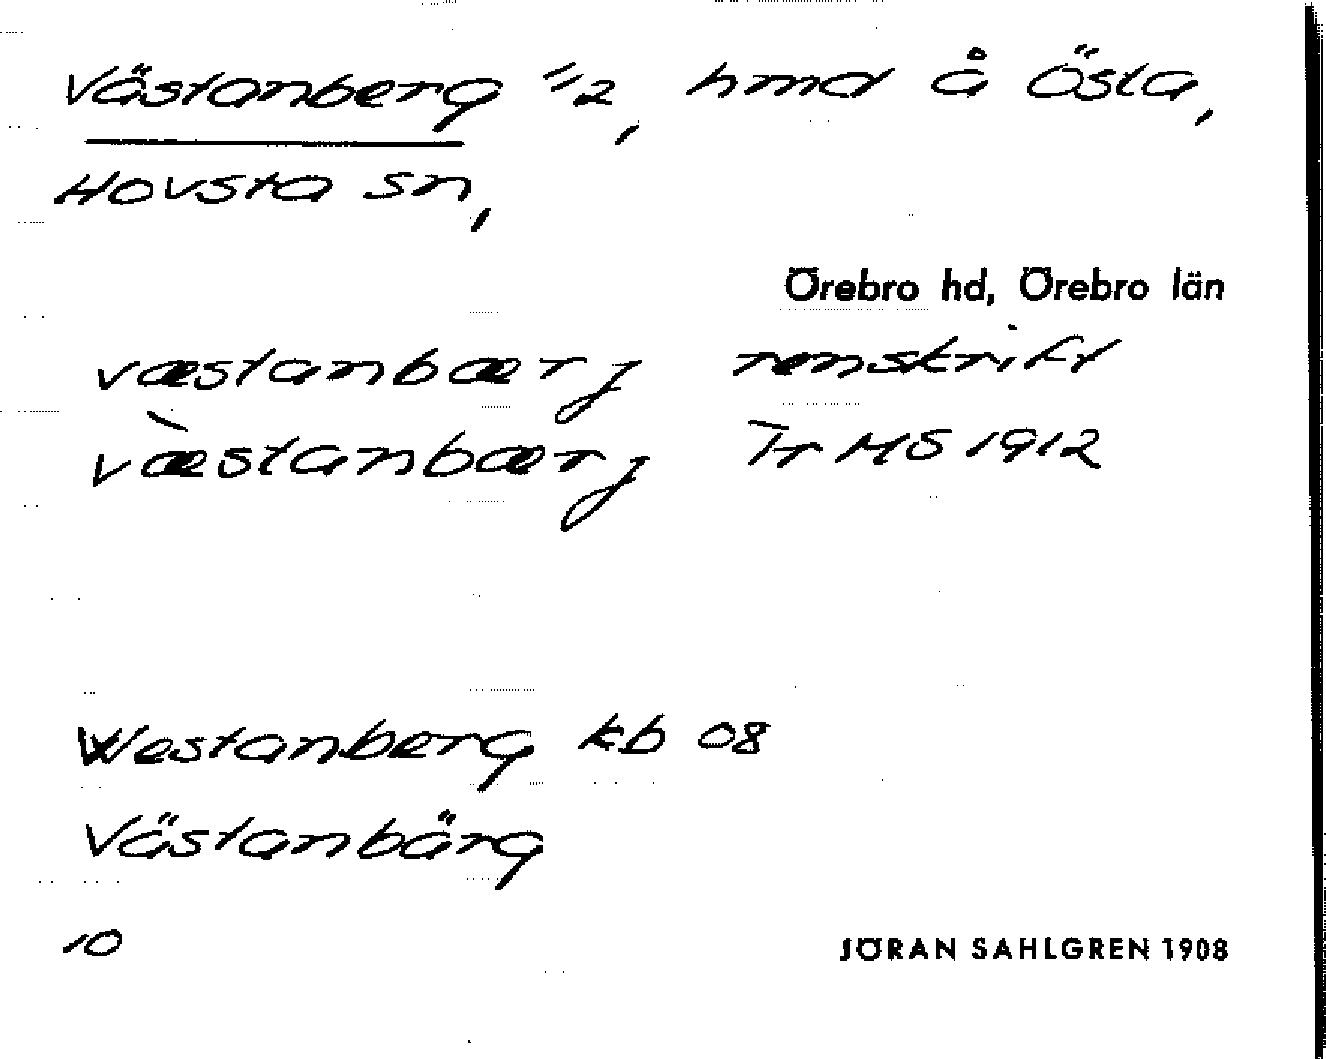 Västanberg 1/2, hmd å Östa,
Hovsta sn,
Örebro hd, Örebro län
væstanbærj renskrift
væ̀stanbærj Tr MS 1912
Westanberg kb 08
Västanbärg
10 JÖRAN SAHLGREN 1908